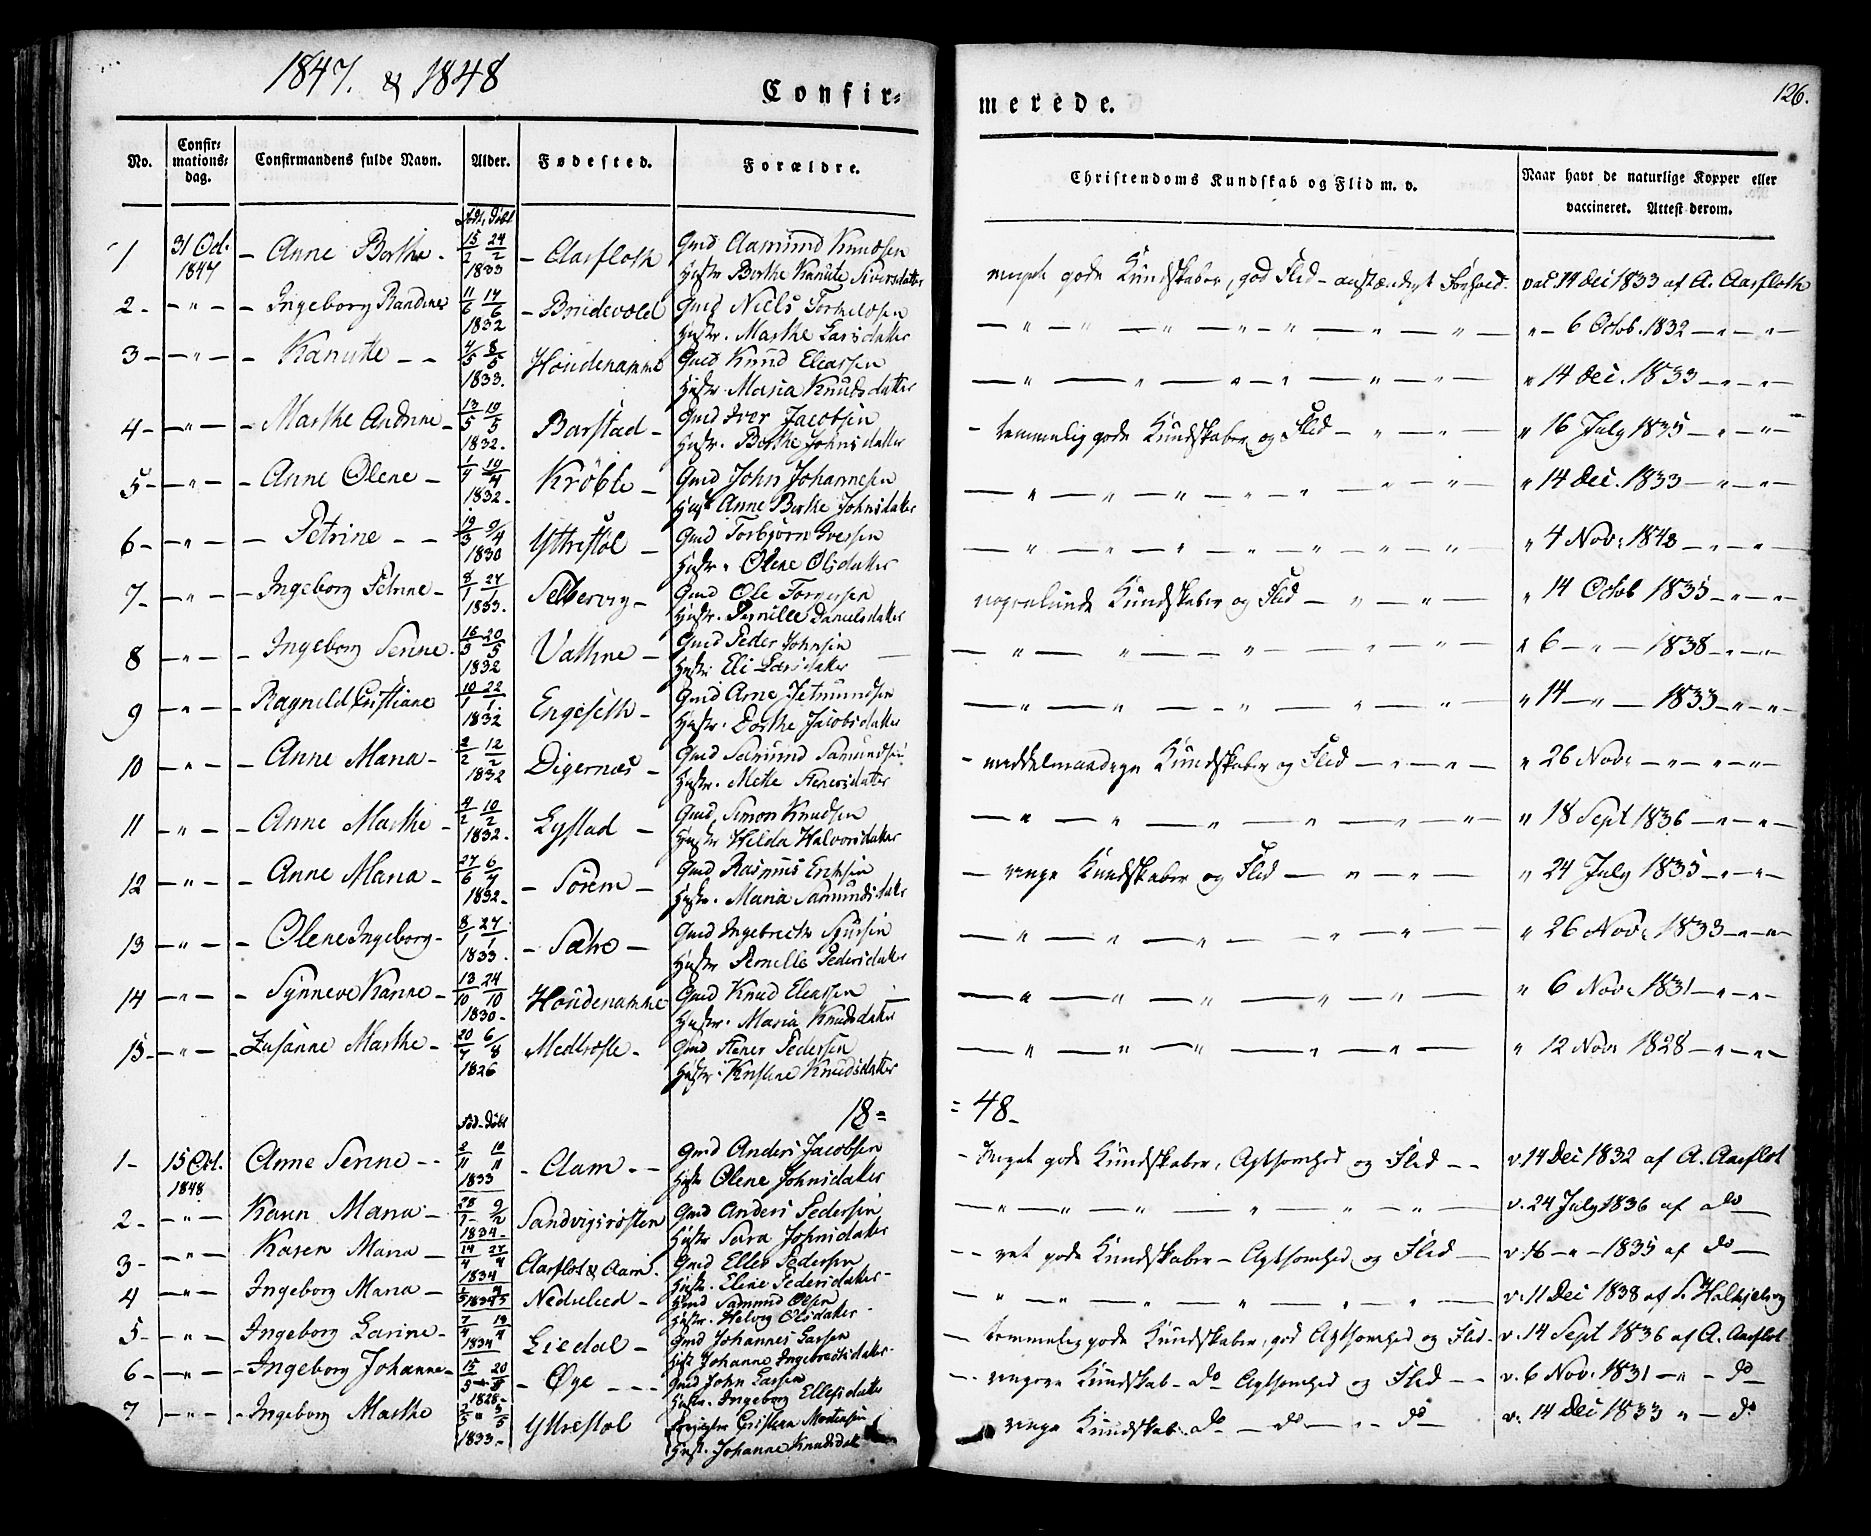 1847. & 1848
Confir=
merede.
126.
No.
Confir-
mations-
dag.
Confirmandens fulde Navn.
Alder.
Fødested.
Forældre.
Christendoms Kundskab og Flid m. v.
Naar havt de naturlige Kopper eller
vaccineret. Attest derom.
fød. Døbt
1 31 Oct. 1847 - Anne Berthe - 15/2 24/2 1833 - Aarfloth Gmd Aamund Knudsen
Hustr Berthe Kanute Siversdatter
meget gode Kundskaber, god Flid - anstændigt Forhold - vac. 14 Dec 1833 af A. Aarfloth
2 - " - Ingeborg Randine 11/6 17/6 1832 - Bruidevold Gmd Niels Torkildsen
Hustr. Marthe Larsdatter
" - 6 Octob. 1832 - " - " -
3 - " - Kanutte - - 4/5 8/5 1833. Houdenamme Gmd Knud Eleassen
Hustr. Maria Knudsdatter
" 14 Dec. 1833 - " - " -
4 - " - Marthe Andrine - 13/5 19/5 1832. Barstad - Gmd Iver Jacobsen
Hustr. Berthe Johnsdatter
- temmelig gode Kundskaber og Flid - " - " - " 16 July 1835 - " - " -
5 - " - Anne Olene - 1/4 19/4 1832 - Krøble - Gmd John Johannesen
Hust Anne Berthe Johnsdatter
" 14 Dec. 1833 - " - " -
6 - " - Petrine - - 19/3 9/4 1830 Yttrestøl - Gmd Torbjørn Iversen
Hustr. Olene Olsdatter
" 4 Nov: 1843 - " - " -
7 - " - Ingeborg Petrine - 8/1 27/1 1833. Selbervig - Gmd Ole Torgersen
Hustr. Pernille Danielsdatter
nogenlunde Kundskaber og Flid - " - " - " 14 Octob 1835 - " - " -
8 - " - Ingeborg Serine - 16/3 20/5 1832 Vathne - Gmd Peder Johnsen
Hustr. Eli Larsdatter
" 6 - " - 1838 - " - " -
9 - " - Ragnild Cristiane 10/1 22/1 1832 Engeseth - Gmd Arne Jetmundsen
Hustr. Dorthe Jacobsdatter
" 14 - " - 1833 - " - " -
10 - " - Anne Maria - 2/2 12/2 1832 Digernæs - Gmd Samund Samundsen
Hustr. Mette Stenersdatter
- middelmaadige Kundskaber og Flid - " - " - " 26 Nov: - " - " - " -
11 - " - Anne Marthe - 4/2 10/2 1832 - Lystad - Gmd Simon Knudsen
Hustr Hilda Halvorsdatter
" 18 Sept 1836 - " - " -
12 - " - Anne Maria - 27/6 6/7 1832 - Sørem - Gmd Rasmus Ericksen
Hustr. Maria Samundsdatter
- ringe Kundskaber og Flid - " - " - " 24 July 1835 - " - " -
13 - " - Olene Ingeborg - 8/1 27/1 1833. - Sætre - Gmd Ingebreth Syursen
Hustr Pernille Pedersdatter
" 26 Nov: 1833 - " - " -
14 - " - Synneve Karine - 13/10 24/10 1830 - Houdenamme Gmd Knud Eleassen
Hustr. Maria Knudsdatter
" 6 Nov: 1831 - " - " -
15 - " - Zusanne Marthe - 20/7 6/8 1826 Medtrøste - Gmd Stener Pedersen
Hustr. Kristine Knudsdatter
" 12 Nov 1828 - " - " -
18 = = 48 -
Fød - Døbt
1 - 15 Oct. 1848 Anne Serine - - 2/11 19/11 1833 - Aam - - Gmd Anders Jacobsen
Hustr Olene Johnsdatter
- Meget gode Kundskaber, Agtsomhed og Flid - - v. 14 Dec 1832 af A. Aarflot
2 - " - Karen Maria - 28/1 9/2 1834 - Sandvigsrøsten Gmd Anders Pedersen
Hustr Sara Johnsdatter
v. 24 July 1836 af do -
3 - " - Karen Maria - 14/4 27/4 1834 Aarflot & Aam. Gmd Ellev Pedersen
Hustr. Elene Pedersdatter
- - ret gode Kundskaber - Agtsomhed og Flid - v. 16 - " - 1835 af do -
4 - " - Ingeborg Maria - 1834 Nedrelied - Gmd Samund Olsen
Hustr. Helvig Olsdatter
v. 11 Dec 1838 af
5 - " - Ingeborg Larine - 7/4 19/4 1834 Liedal - Gmd Johannes Larsen
Hust Johanne Ingebretsdatter
- temmelig gode Kundskaber, god Agtsomhed og Flid - v. 14 Sept 1836 af A. Aarflot
6 - " - Ingeborg Johanne - 15/5 20/5 1828 - Øye - - - Gmd John Larsen
Hustr. Ingeborg Ellefsdatter
- ringere Kundskab - do Agtsomhed og Flid - - v. 6 Nov. 1831 - " - do
7 - " - Ingeborg Marthe 2/5 " 5/5 1833 - Yttrestøl Cristen Mortensen
Hust. Johanne Knudsdat
ringe Kundskab - do - do - " - do - v. 14 Dec 1833 " - do